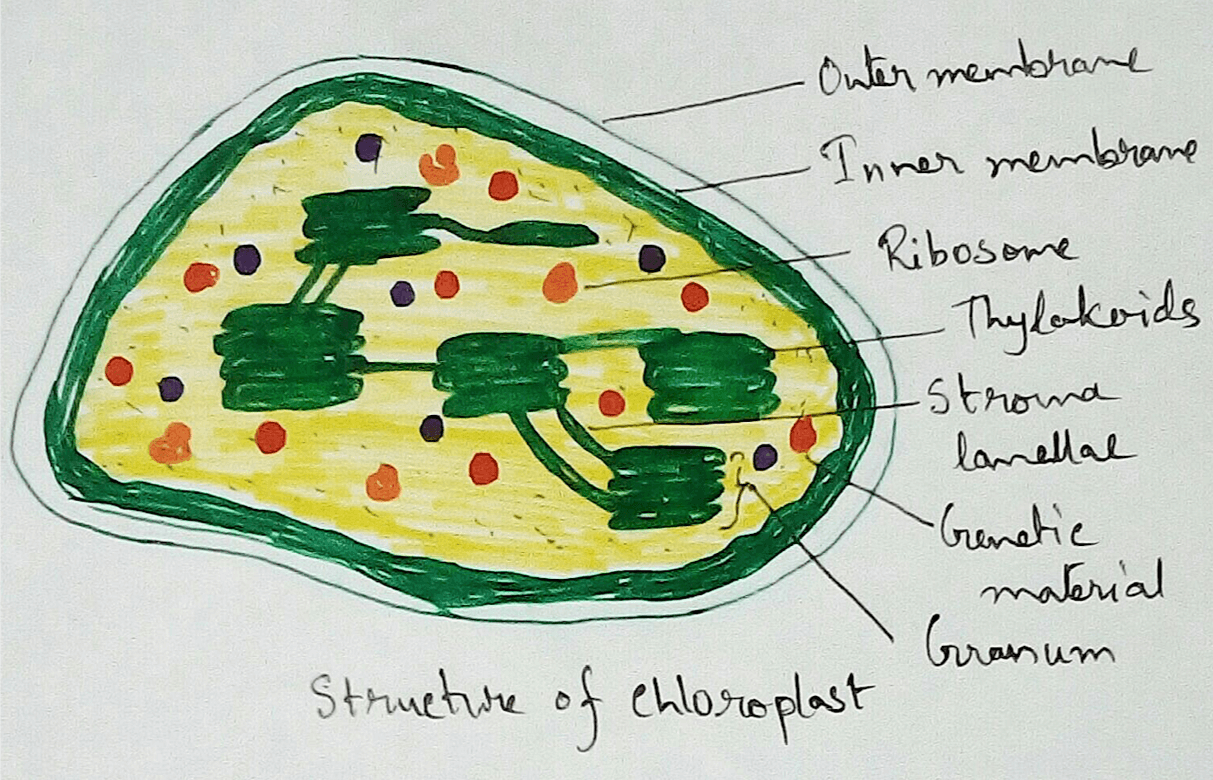 Outer membrane
Inner membrane
Ribosome
Thylakoids
Stroma
lamellae
Genetic
material
Granum
Structure of chloroplast